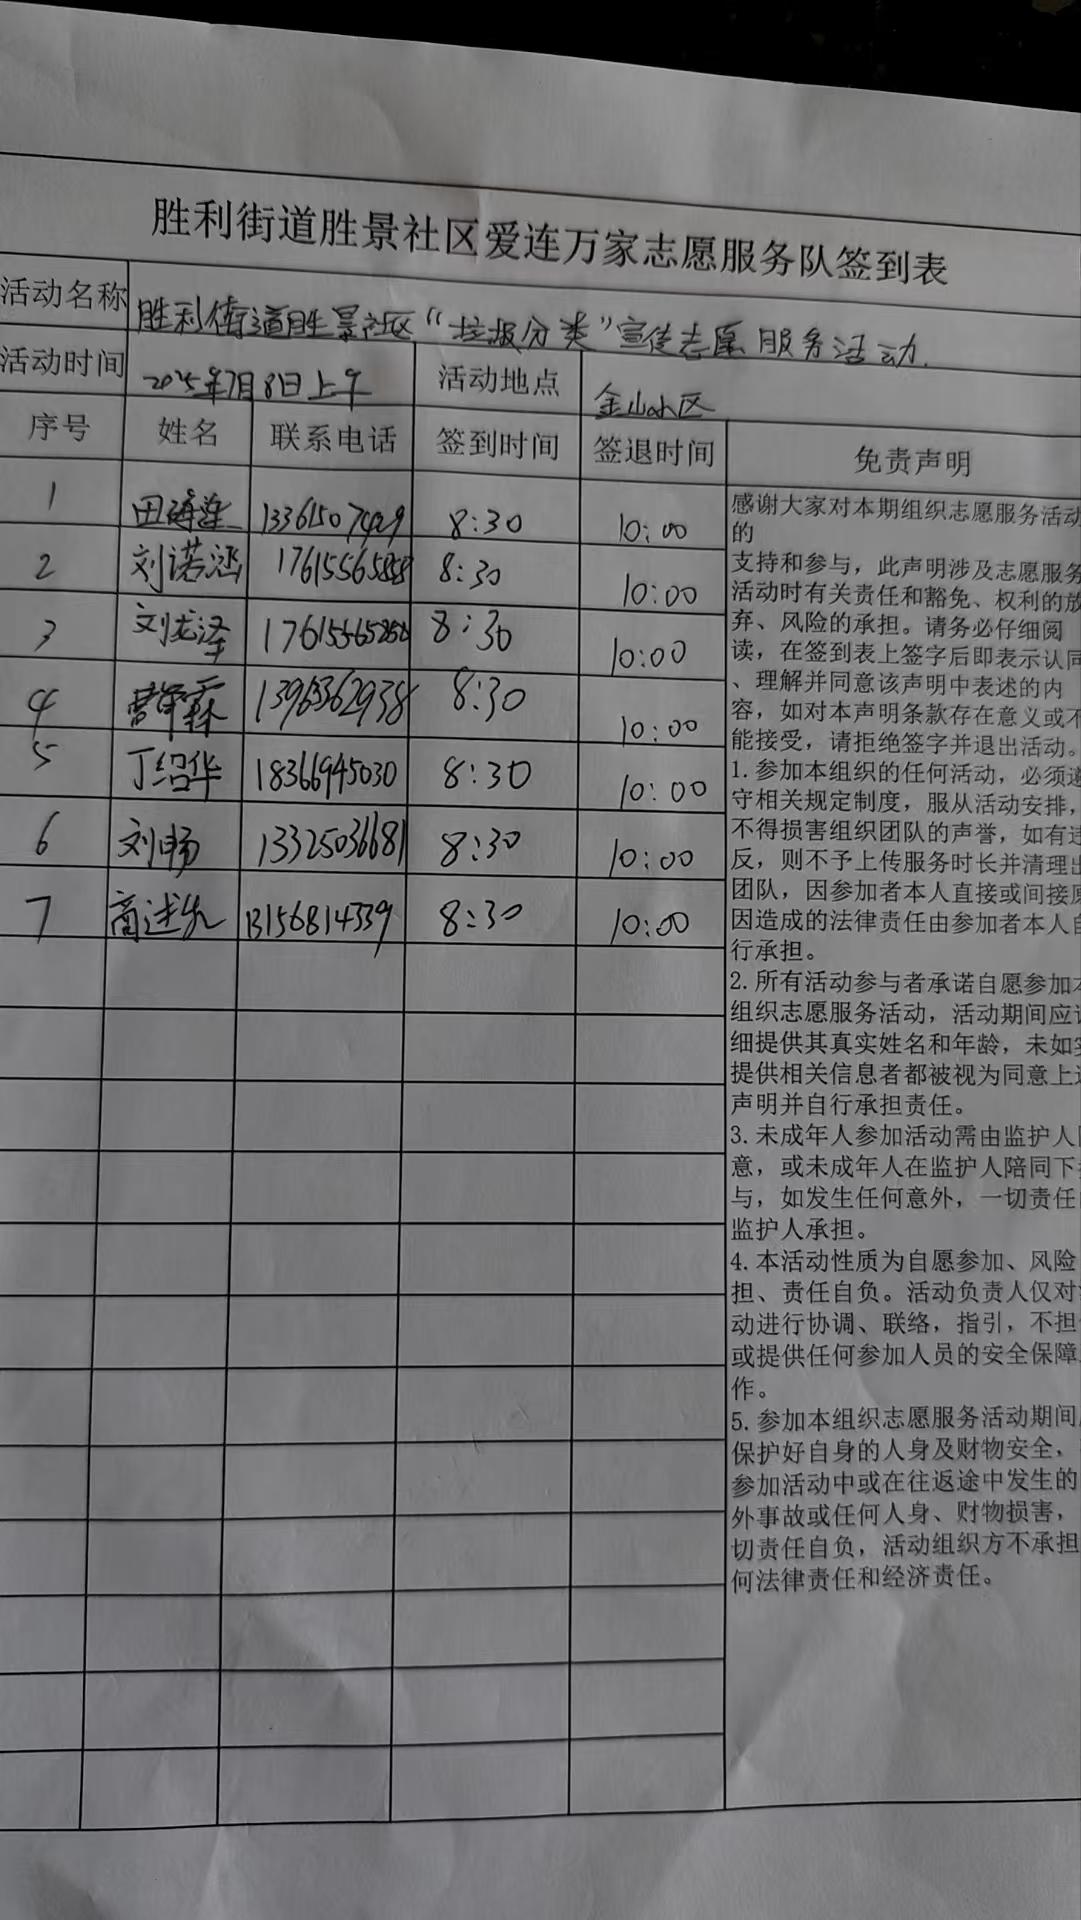 胜利街道胜景社区爱连万家志愿服务队签到表
活动名称 胜利街道胜景社区“垃圾分类”宣传志愿服务活动.
活动时间 2025年7月8日上午 活动地点 金山小区
序号 姓名 联系电话 签到时间 签退时间 免责声明
1 田海莲 13361507429 8:30 10:00
2 刘诺涵 17615565858 8:30 10:00
3 刘龙泽 8:30 10:00
4 霖 13963362938 8:30 10:00
5 丁绍华 18366945030 8:30 10:00
6 刘畅 13325036681 8:30 10:00
7 商述先 13156814339 8:30 10:00
感谢大家对本期组织志愿服务活动
的
支持和参与，此声明涉及志愿服务
活动时有关责任和豁免、权利的放
弃、风险的承担。请务必仔细阅
读，在签到表上签字后即表示认同
、理解并同意该声明中表述的内
容，如对本声明条款存在意义或不
能接受，请拒绝签字并退出活动。
1.参加本组织的任何活动，必须遵
守相关规定制度，服从活动安排，
不得损害组织团队的声誉，如有违
反，则不予上传服务时长并清理出
团队，因参加者本人直接或间接原
因造成的法律责任由参加者本人自
行承担。
2.所有活动参与者承诺自愿参加本
组织志愿服务活动，活动期间应详
细提供其真实姓名和年龄，未如实
提供相关信息者都被视为同意上述
声明并自行承担责任。
3.未成年人参加活动需由监护人同
意，或未成年人在监护人陪同下参
与，如发生任何意外，一切责任由
监护人承担。
4.本活动性质为自愿参加、风险
担、责任自负。活动负责人仅对活
动进行协调、联络，指引，不担任
或提供任何参加人员的安全保障工
作。
5.参加本组织志愿服务活动期间应
保护好自身的人身及财物安全，
参加活动中或在往返途中发生的
外事故或任何人身、财物损害，
切责任自负，活动组织方不承担
何法律责任和经济责任。